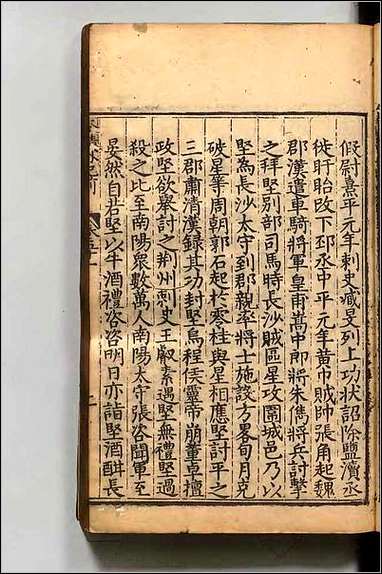 假尉熹平元年刺史臧旻列上功狀詔除鹽瀆丞
徙盱眙改下邳丞中平元年黃巾賊帥張角起魏
郡漢遣車騎將軍皇甫嵩中郎將朱儁將兵討擊
之拜堅別部司馬時長沙賊區星攻圍城邑乃以
堅為長沙太守到郡親率將士施設方略旬月克
破星等周朝郭石起於零桂與星相應堅討平之
三郡肅清漢錄其功封堅烏程侯靈帝崩董卓擅
政堅欲舉討之荆州刺史王叡素遇堅無禮堅過
殺之比至南陽眾數萬人南陽太守張咨聞軍至
晏然自若堅以牛酒禮咨咨明日亦詣堅酒酣長